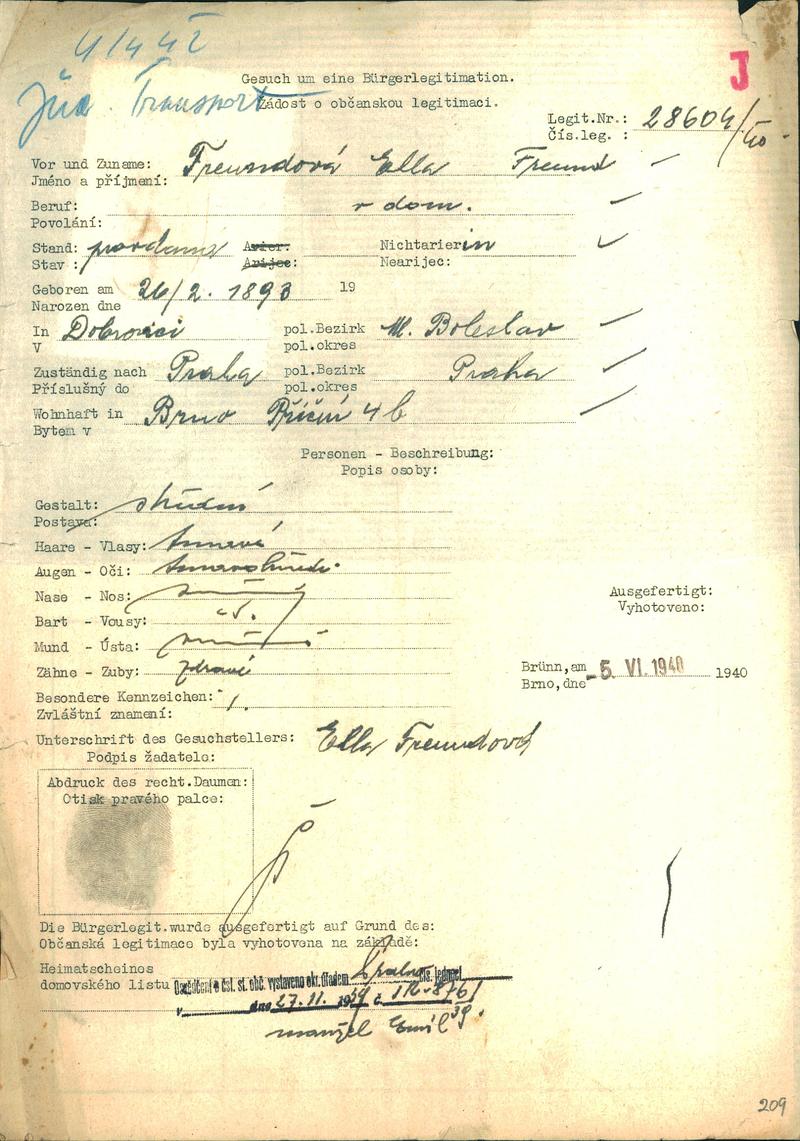 4/4 42
J
Jüd. Transport
Gesuch um eine Bürgerlegitimation.
Žádost o občanskou legitimaci.
Legit.Nr.: 28604/40
Čís.leg. :
Vor und Zuname: Freundová Ella Freund
Jméno a příjmení:
Beruf: v dom.
Povolání:
Stand: provdaná Arier: Nichtarierin
Stav : Arijec: Nearijec:
Geboren am 26/2. 1893 19
Narozen dne
In pol.Bezirk Ml. Boleslav
V pol.okres
Zuständig nach Praha pol.Bezirk Praha
Příslušný do pol.okres
Wohnhaft in Brno Příční 4b
Bytem v
Personen - Beschreibung:
Popis osoby:
Gestalt: střední
Postava:
Haare - Vlasy: tmavé
Augen - Oči: tmavohnědé
Nase - Nos:
Bart - Vousy:
Mund - Ústa:
Zähne - Zuby: zdravé
Besondere Kennzeichen:
Zvláštní znamení:
Ausgefertigt:
Vyhotoveno:
Brünn,am 5. VI. 1940 1940
Brno,dne
Unterschrift des Gesuchstellers: Ella Freundová
Podpis žadatele:
Abdruck des recht.Daumen:
Otisk pravého palce:
Die Bürgerlegit.wurde ausgefertigt auf Grund des:
Občanská legitimace byla vyhotovena na základě:
Heimatscheines
domovského listu Osvědčení o čsl. st. obč. vystaveno okr. úřadem čís. jednací
v dne 27.11. 1939 č.
manžel Emil
209